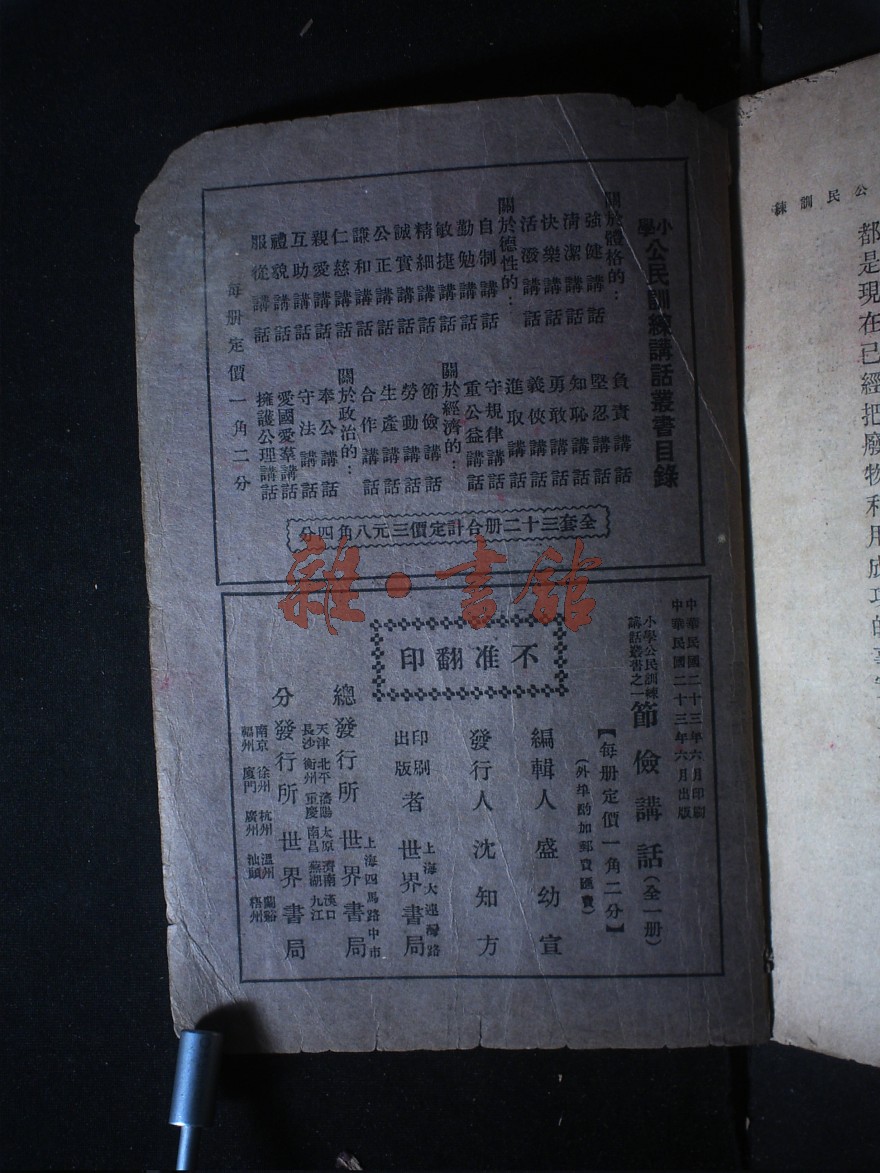 小學公民訓練講話叢書目錄
關於體格的：
強健講話
清潔講話
快樂講話
活潑講話
關於德性的：
自制講話
勤勉講話
敏捷講話
精細講話
誠實講話
公正講話
謙和講話
仁慈講話
親愛講話
互助講話
禮貌講話
服從講話
負責講話
堅忍講話
知恥講話
勇敢講話
義俠講話
進取講話
守規律講話
重公益講話
關於經濟的：
節儉講話
勞動講話
生產講話
合作講話
關於政治的：
奉公講話
守法講話
愛國愛羣講話
擁護公理講話
每册定價一角二分
全套三十二册合計定價三元八角四分
中華民國二十三年六月印刷
中華民國二十三年六月出版
小學公民訓練講話叢書之一
節儉講話（全一册）
【每册定價一角二分】
（外埠酌加郵費匯費）
不准翻印
編輯人 盛幼宣
發行人 沈知方
印刷出版者 上海大連灣路 世界書局
總發行所 上海四馬路中市 世界書局
分發行所 世界書局
天津 北平 瀋陽 太原 濟南 漢口
長沙 衡州 重慶 南昌 蕪湖 九江
南京 徐州 杭州 溫州 蘭谿
福州 廈門 廣州 汕頭 梧州
雜·書館
公民訓練
都是現在已經把廢物利用成功的